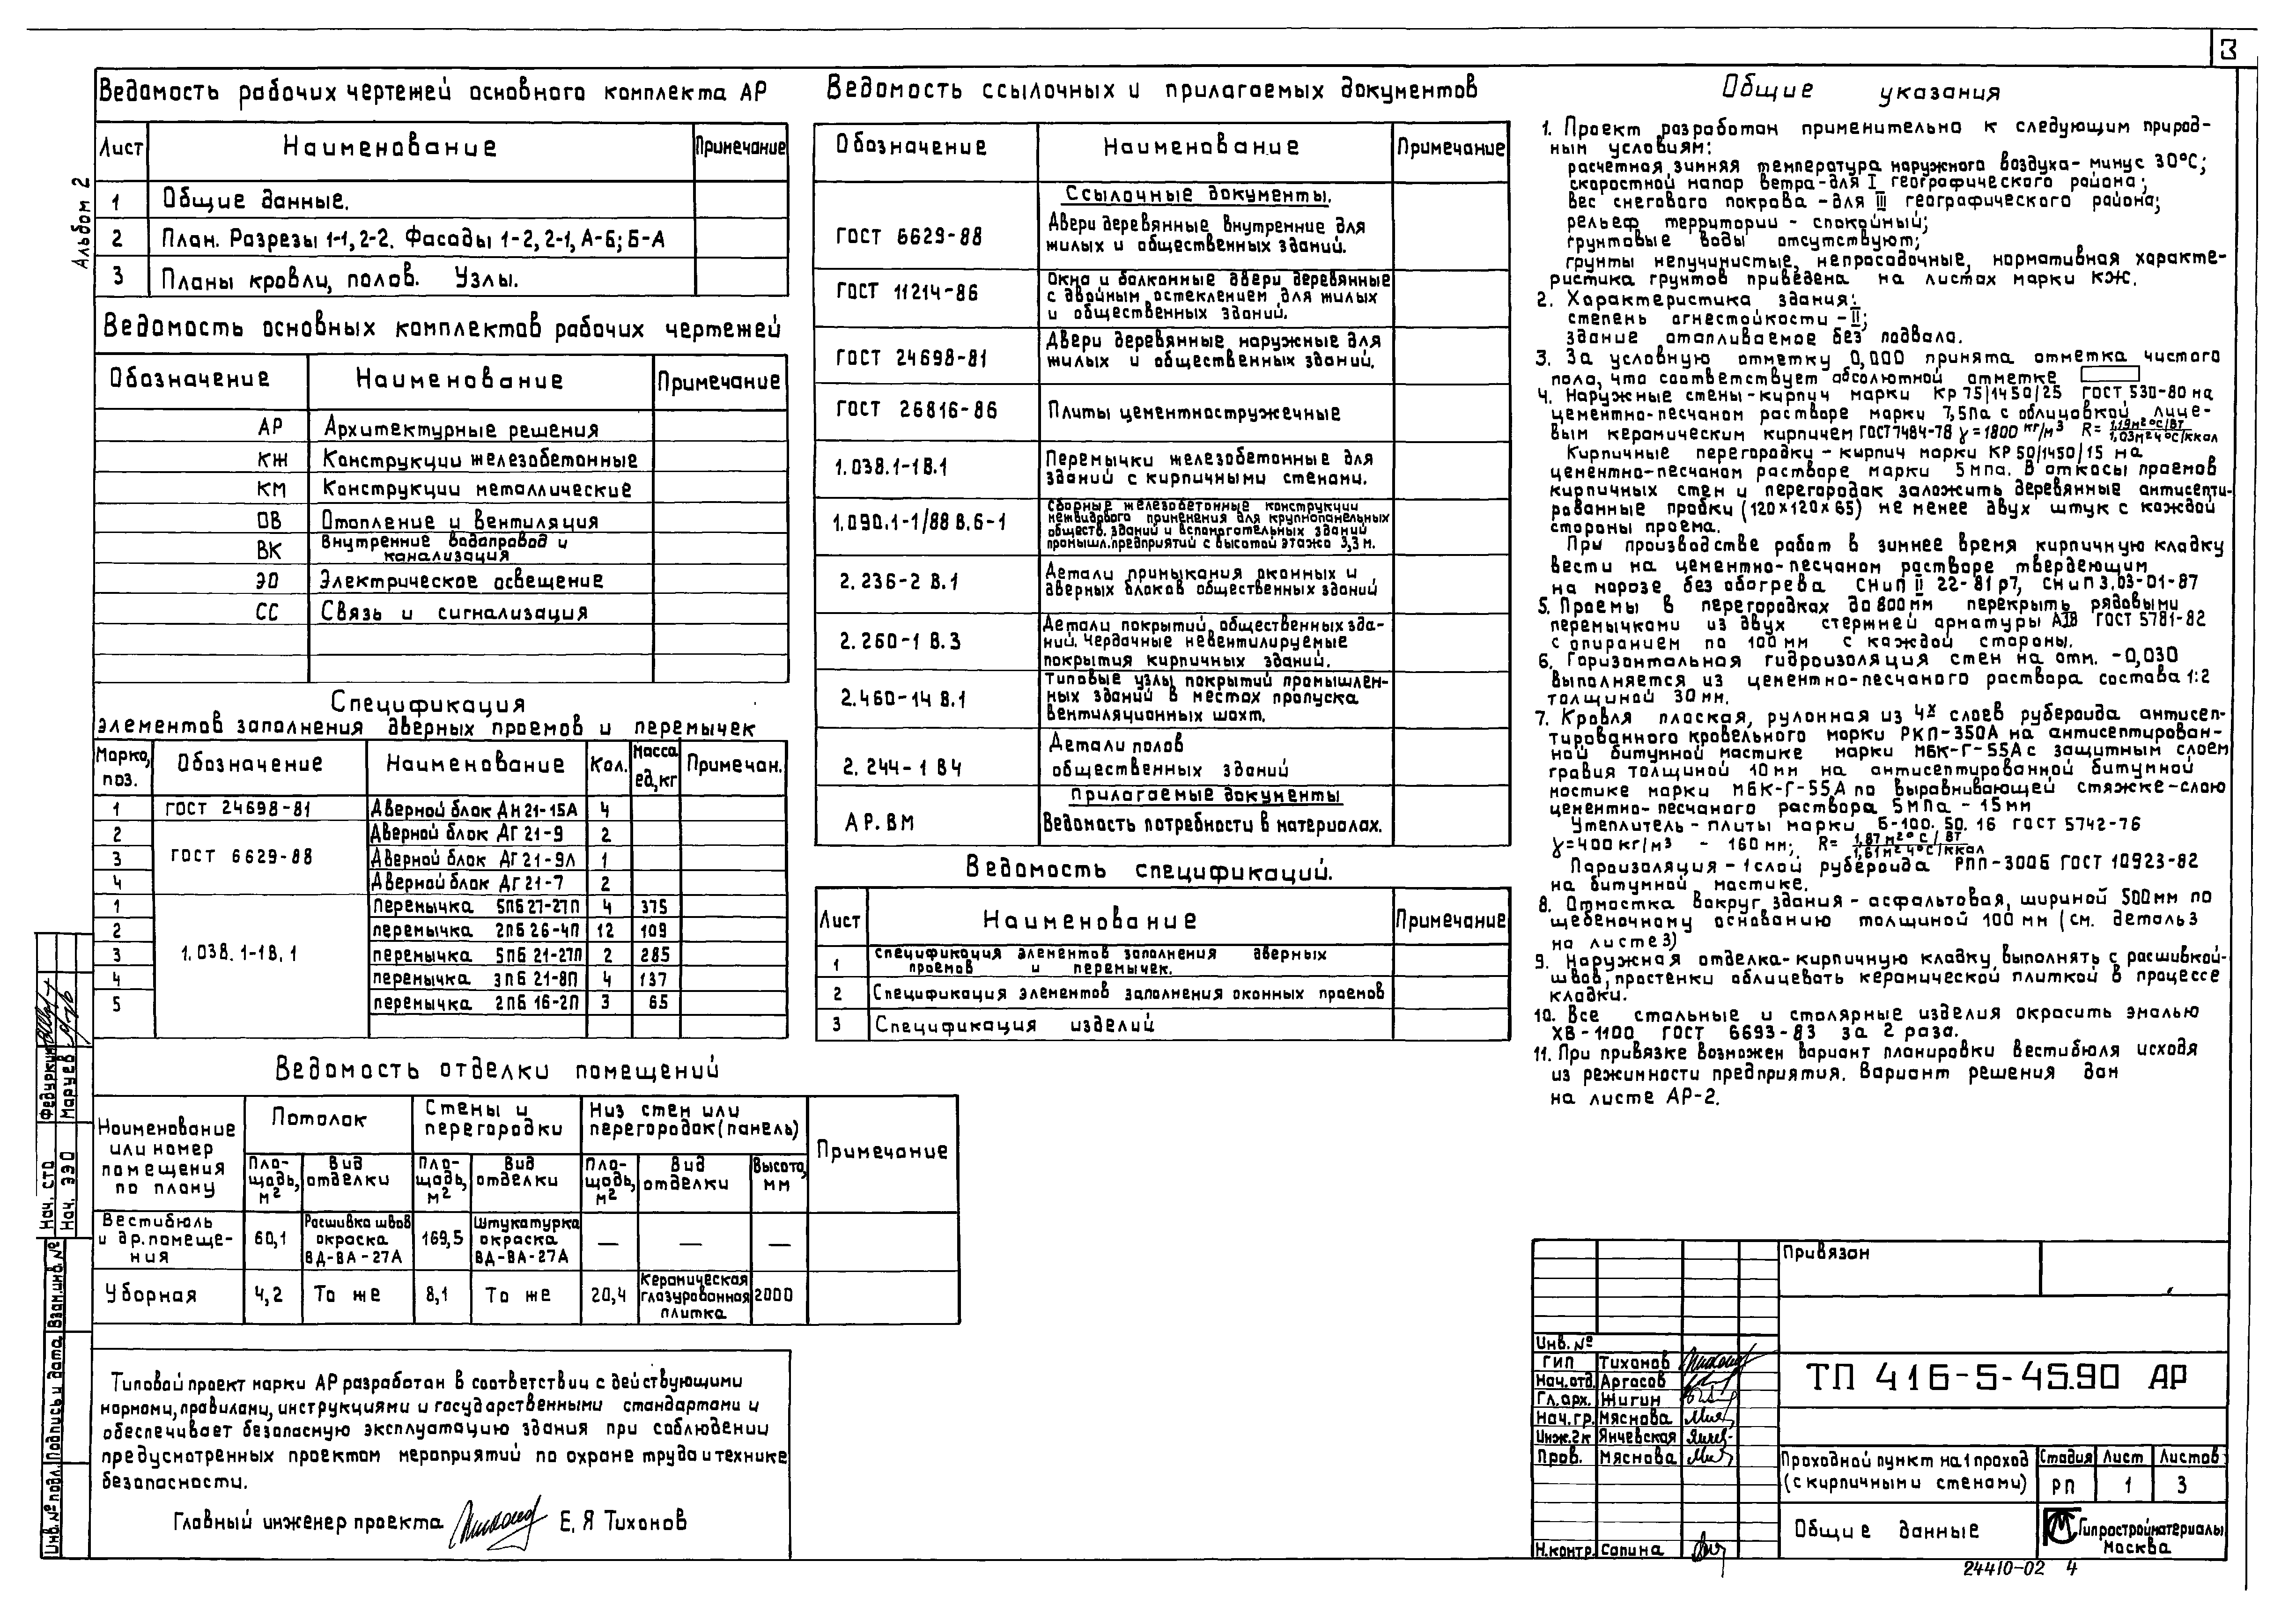 3
Альбом 2
Ведомость рабочих чертежей основного комплекта АР
Лист Наименование Примечание
1 Общие данные.
2 План. Разрезы 1-1, 2-2. Фасады 1-2, 2-1, А-Б; Б-А
3 Планы кровли, полов. Узлы.
Ведомость основных комплектов рабочих чертежей
Обозначение Наименование Примечание
АР Архитектурные решения
КЖ Конструкции железобетонные
КМ Конструкции металлические
ОВ Отопление и вентиляция
ВК Внутренние водопровод и
канализация
ЭО Электрическое освещение
СС Связь и сигнализация
Спецификация
элементов заполнения дверных проемов и перемычек
Марка, поз. Обозначение Наименование Кол. Масса ед, кг Примечан.
1 ГОСТ 24698-81 Дверной блок ДН 21-15А 4
2 Дверной блок ДГ 21-9 2
3 ГОСТ 6629-88 Дверной блок ДГ 21-9Л 1
4 Дверной блок ДГ 21-7 2
1 перемычка 5ПБ 27-27П 4 375
2 перемычка 2ПБ 26-4П 12 109
3 1.038.1-1В.1 перемычка 5ПБ 21-27П 2 285
4 перемычка 3ПБ 21-8П 4 137
5 перемычка 2ПБ 16-2П 3 65
Ведомость отделки помещений
Наименование
или номер
помещения
по плану
Потолок
Стены и
перегородки
Низ стен или
перегородок (панель)
Примечание
Пло-
щадь,
м²
Вид
отделки
Пло-
щадь,
м²
Вид
отделки
Пло-
щадь,
м²
Вид
отделки
Высота,
мм
Вестибюль
и др. помеще-
ния
60,1
Расшивка швов
окраска
ВД-ВА-27А
169,5
Штукатурка
окраска
ВД-ВА-27А
— — —
Уборная 4,2 То же 8,1 То же 20,4
Керамическая
глазурованная
плитка
2000
Типовой проект марки АР разработан в соответствии с действующими
нормами, правилами, инструкциями и государственными стандартами и
обеспечивает безопасную эксплуатацию здания при соблюдении
предусмотренных проектом мероприятий по охране труда и технике
безопасности.
Главный инженер проекта Е. Я Тихонов
Ведомость ссылочных и прилагаемых документов
Обозначение Наименование Примечание
Ссылочные документы.
ГОСТ 6629-88 Двери деревянные внутренние для
жилых и общественных зданий.
ГОСТ 11214-86 Окна и балконные двери деревянные
с двойным остеклением для жилых
и общественных зданий.
ГОСТ 24698-81 Двери деревянные наружные для
жилых и общественных зданий.
ГОСТ 26816-86 Плиты цементностружечные
1.038.1-1В.1 Перемычки железобетонные для
зданий с кирпичными стенами.
1.090.1-1/88 В.6-1 Сборные железобетонные конструкции
межвидового применения для крупнопанельных
обществ. зданий и вспомогательных зданий
промышл. предприятий с высотой этажа 3,3 м.
2.236-2 В.1 Детали примыкания оконных и
дверных блоков общественных зданий
2.260-1 В.3 Детали покрытий общественных зда-
ний. Чердачные невентилируемые
покрытия кирпичных зданий.
2.460-14 В.1 Типовые узлы покрытий промышлен-
ных зданий в местах пропуска
вентиляционных шахт.
2.244-1 В4 Детали полов
общественных зданий
Прилагаемые документы
АР.ВМ Ведомость потребности в материалах.
Ведомость спецификаций.
Лист Наименование Примечание
1 Спецификация элементов заполнения дверных
проемов и перемычек.
2 Спецификация элементов заполнения оконных проемов
3 Спецификация изделий
Общие указания
1. Проект разработан применительно к следующим природ-
ным условиям:
расчетная зимняя температура наружного воздуха - минус 30°С;
скоростной напор ветра - для I географического района;
вес снегового покрова - для III географического района;
рельеф территории - спокойный;
грунтовые воды отсутствуют;
грунты непучинистые, непросадочные, нормативная характе-
ристика грунтов приведена на листах марки КЖ.
2. Характеристика здания:
степень огнестойкости - II;
здание отапливаемое без подвала.
3. За условную отметку 0,000 принята отметка чистого
пола, что соответствует абсолютной отметке
4. Наружные стены - кирпич марки Кр 75/1450/25 ГОСТ 530-80 на
цементно-песчаном растворе марки 7,5па с облицовкой лице-
вым керамическим кирпичем ГОСТ 7484-78 γ=1800 кг/м³ R= 1,19м²°С/Вт / 1,03м²ч°С/ккал
Кирпичные перегородки - кирпич марки КР 50/1450/15 на
цементно-песчаном растворе марки 5мпа. В откосы проемов
кирпичных стен и перегородок заложить деревянные антисепти-
рованные пробки (120×120×65) не менее двух штук с каждой
стороны проема.
При производстве работ в зимнее время кирпичную кладку
вести на цементно-песчаном растворе твердеющим
на морозе без обогрева СНиП II 22-81 р7, СНиП 3.03-01-87
5. Проемы в перегородках до 800 мм перекрыть рядовыми
перемычками из двух стержней арматуры ГОСТ 5781-82
с опиранием по 100 мм с каждой стороны.
6. Горизонтальная гидроизоляция стен на отм. -0,030
выполняется из цементно-песчаного раствора состава 1:2
толщиной 30 мм.
7. Кровля плоская, рулонная из 4х слоев рубероида антисеп-
тированного кровельного марки РКП-350А на антисептирован-
ной битумной мастике марки МБК-Г-55А с защитным слоем
гравия толщиной 10 мм на антисептированной битумной
мастике марки МБК-Г-55А по выравнивающей стяжке-слою
цементно-песчаного раствора 5МПа - 15мм
Утеплитель - плиты марки Б-100.50.16 ГОСТ 5742-76
γ=400 кг/м³ - 160 мм; R= 1,87 м²°С/Вт / 1,61м²ч°С/ккал
Пароизоляция - 1 слой рубероида РПП-300Б ГОСТ 10923-82
на битумной мастике.
8. Отмостка вокруг здания - асфальтовая, шириной 500мм по
щебеночному основанию толщиной 100 мм (см. деталь 3
на листе 3)
9. Наружная отделка - кирпичную кладку выполнять с расшивкой
швов, простенки облицевать керамической плиткой в процессе
кладки.
10. Все стальные и столярные изделия окрасить эмалью
ХВ-1100 ГОСТ 6693-83 за 2 раза.
11. При привязке возможен вариант планировки вестибюля исходя
из режимности предприятия. Вариант решения дан
на листе АР-2.
Привязан
Инв. №
ГИП Тихонов
Нач. отд. Аргасов
Гл. арх. Жигин
Нач. гр. Мяснова
Инж. 2к Янчевская
Пров. Мяснова
Н. контр. Сапина
ТП 416-5-45.90 АР
Проходной пункт на 1 проход
(с кирпичными стенами)
Стадия Лист Листов
РП 1 3
Общие данные
Гипростройматериалы
Москва
24410-02 4
Нач. СТО Федуркин
Нач. ЭЭО Маруев
Инв. № подл. Подпись и дата Взам. инв. №